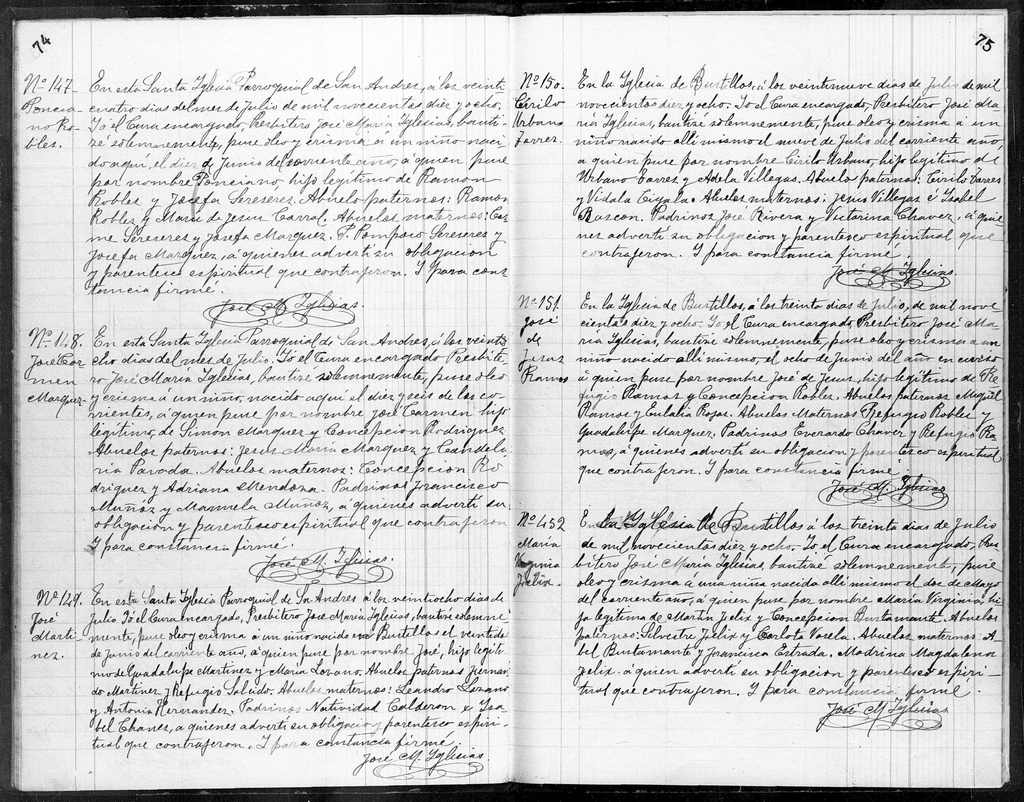 74
Nº 147.
Poncia-
no Ro-
bles.
En esta Santa Iglesia Parroquial de San Andres, á los veinti-
cuatro dias del mes de Julio de mil novecientos diez y ocho,
Yó el Cura encargado, Presbitero José María Iglesias, bauti-
zé solemnemente, puse oleo y crisma á un niño naci-
do aquí, el diez d Junio del corriente año, á quien puse
por nombre Ponciano, hijo legitimo de Ramón
Robles y Josefa Sereseres. Abuelos paternos: Ramon
Robles y Maria de Jesus Corral. Abuelos maternos: Cos-
me Sereseres y Josefa Marquez. P. Pomposo Sereseres y
Josefa Marquez, á quienes advertí su obligacion
y parentesco espiritual que contrajeron. Y para cons
tancia firmé.
José M. Iglesias.
Nº 148.
José Car
men
Marquez
En esta Santa Iglesia Parroquial de San Andres, á los veintio
cho dias del mes de Julio. Yo el Cura encargado Presbite-
ro José María Iglesias, bautizé solemnemente, puse oleo
y crisma á un niño, nacido aquí el diez y seis de los co-
rrientes, á quien puse por nombre José Carmen hijo
legitimo, de Simon Marquez y Concepcion Rodriguez
Abuelos paternos: Jesus María Marquez y Candela-
ria Parada. Abuelos maternos: Concepcion Ro
driguez y Adriana Mendoza. Padrinos Francisco
Muñóz y Manuela Muñoz, á quienes advertí su
obligacion y parentesco espiritual que contrajeron
Y para constancia firmé.
José M. Iglesias.
Nº 149.
José
Marti-
nez.
En esta Santa Iglesia Parroquial de Sn Andres á los veintiocho dias de
Julio Yó el Cura encargado, Presbitero José María Iglesias, bautizé solemne
mente, puse oleo y crisma á un niño nacido en Bustillos el veinte de
de Junio del corriente año, á quien puse por nombre José, hijo legíti-
mo de Guadalupe Martinez y María Lozano. Abuelos Paternos Fernan-
do Martinez y Refugio Salcido. Abuelos maternos: Leandro Lozano
y Antonia Hernandez. Padrinos Natividad Calderon y Isa-
bel Chanes, a quienes advertí su obligacion y parentesco espiri-
tual que contrajeron. Y para constancia firmé
José M. Iglesias.
75
Nº 150.
Cirilo
Urbano
Torrez.
En la Iglesia de Bustillos á los veintinueve dias de Julio de mil
novecientos diez y ocho. Yo el Cura encargado, Presbitero José Ma
ría Iglesias, bautizé solemnemente, puse oleo y crisma á un
niño nacido allí mismo el nueve de Julio del carriente año,
a quien puse por nombre Cirilo Urbano, hijo legítimo de
Urbano Torres y Adela Villegas. Abuelo paternos: Cirilo Torres
y Vidala Abuelos maternos: Jesus Villegas é Isabel
Rascon. Padrinos José Rivera y Victorina Chavez, á quie-
nes advertí su obligacion y parentesco espiritual que
contrajeron. Y para constancia firmé.
José M. Iglesias.
Nº 151.
José
de
Jesus
Ramos
En la Iglesia de Bustillos, á los treinta dias de Julio, de mil nove
cientos diez y ocho. Yo el Cura encargado, Presbitero José Ma-
ría Iglesias, bautizé solemnemente, puse oleo y crisma a un
niño nacido allí mismo, el ocho de Junio del año en curso
á quien puse por nombre José de Jesus, hijo legítimo de Re-
fugio Ramos y Concepcion Robles. Abuelos paternos Miguel
Ramos y Eulalia Rojas. Abuelos Maternos Refugio Robles y
Guadalupe Marquez. Padrinos Everardo Chavez y Refugio Ra-
mos, á quienes advertí su obligacion y parentesco espiritual
que contrajeron. Y para constancia firmé.
José M. Iglesias
Nº 452
María
Virginia
En la Yglesia de Bustillos á los treinta dias de Julio
de mil novecientos diez y ocho. Yo el Cura encargado, Pres-
bitero José María Iglesias, bautizé solemnemente, puse
oleo y crisma á una niña nacida allí mismo el dos de Mayo
del carriente año, á quien puse por nombre María Virginia, hi
ja legítima de Martín Felix y Concepcion Bustamante. Abuelos
paternos: Silvestre Felix y Carlota Varela. Abuelos maternos: A-
bel Bustamante y Francisca Estrada. Madrina Magdalena
Felix. á quien advertí su obligacion y parentesco espiri-
tual que contrajeron. Y para constancia firmé.
José M Iglesias